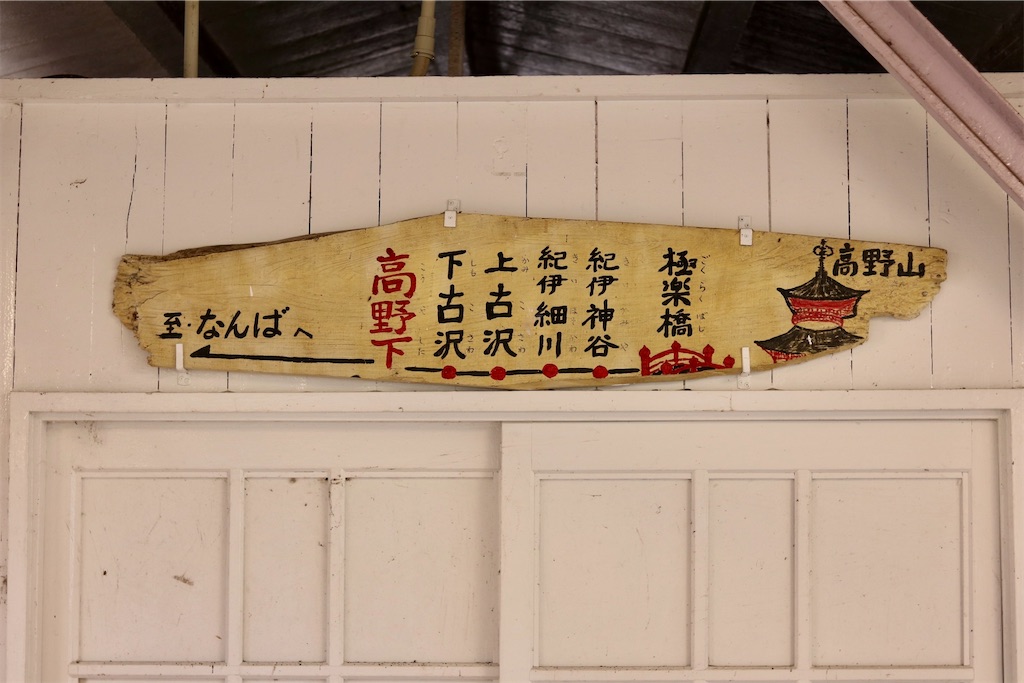 至・なんばへ
高野下
下古沢
上古沢
紀伊細川
紀伊神谷
極楽橋
ごくらくばし
高野山